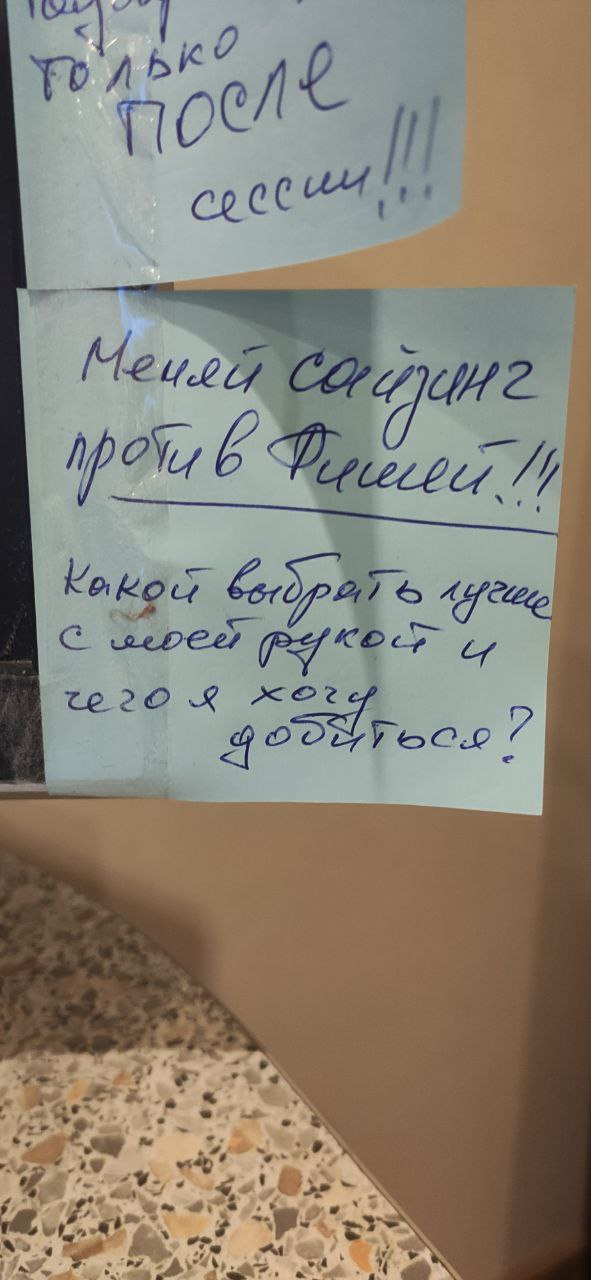 только
после
сессии!!!
Меняй сайзинг
против Фишей!!!
Какой выбрать лучше
с моей рукой и
чего я хочу
добиться?